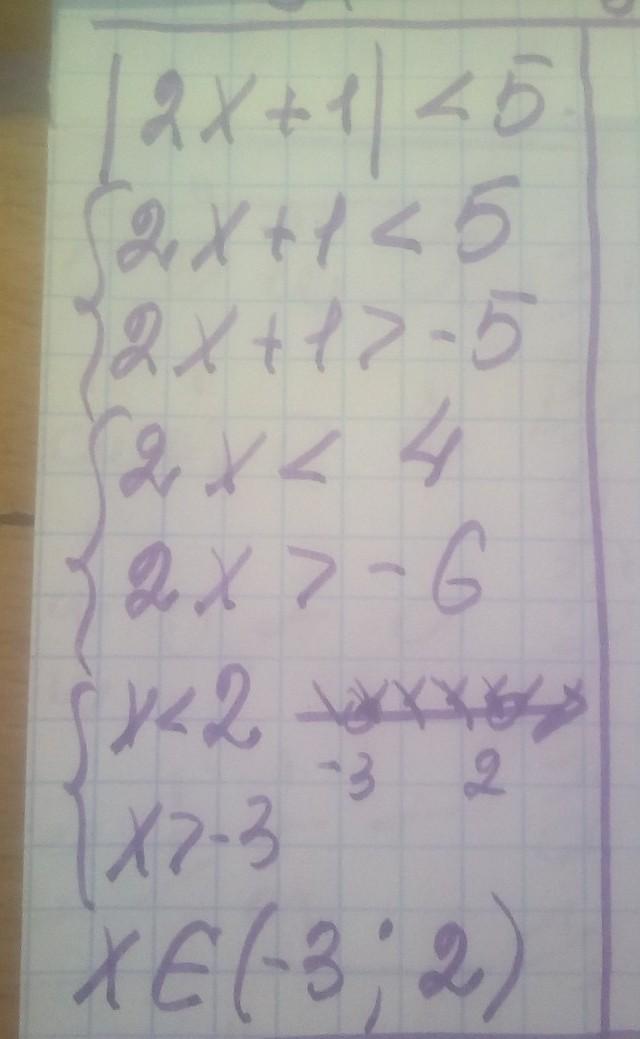 |2x+1| < 5
{2x+1 < 5
2x+1 > -5
{2x < 4
2x > -6
{x < 2
-3 2
x > -3
x ∈ (-3; 2)